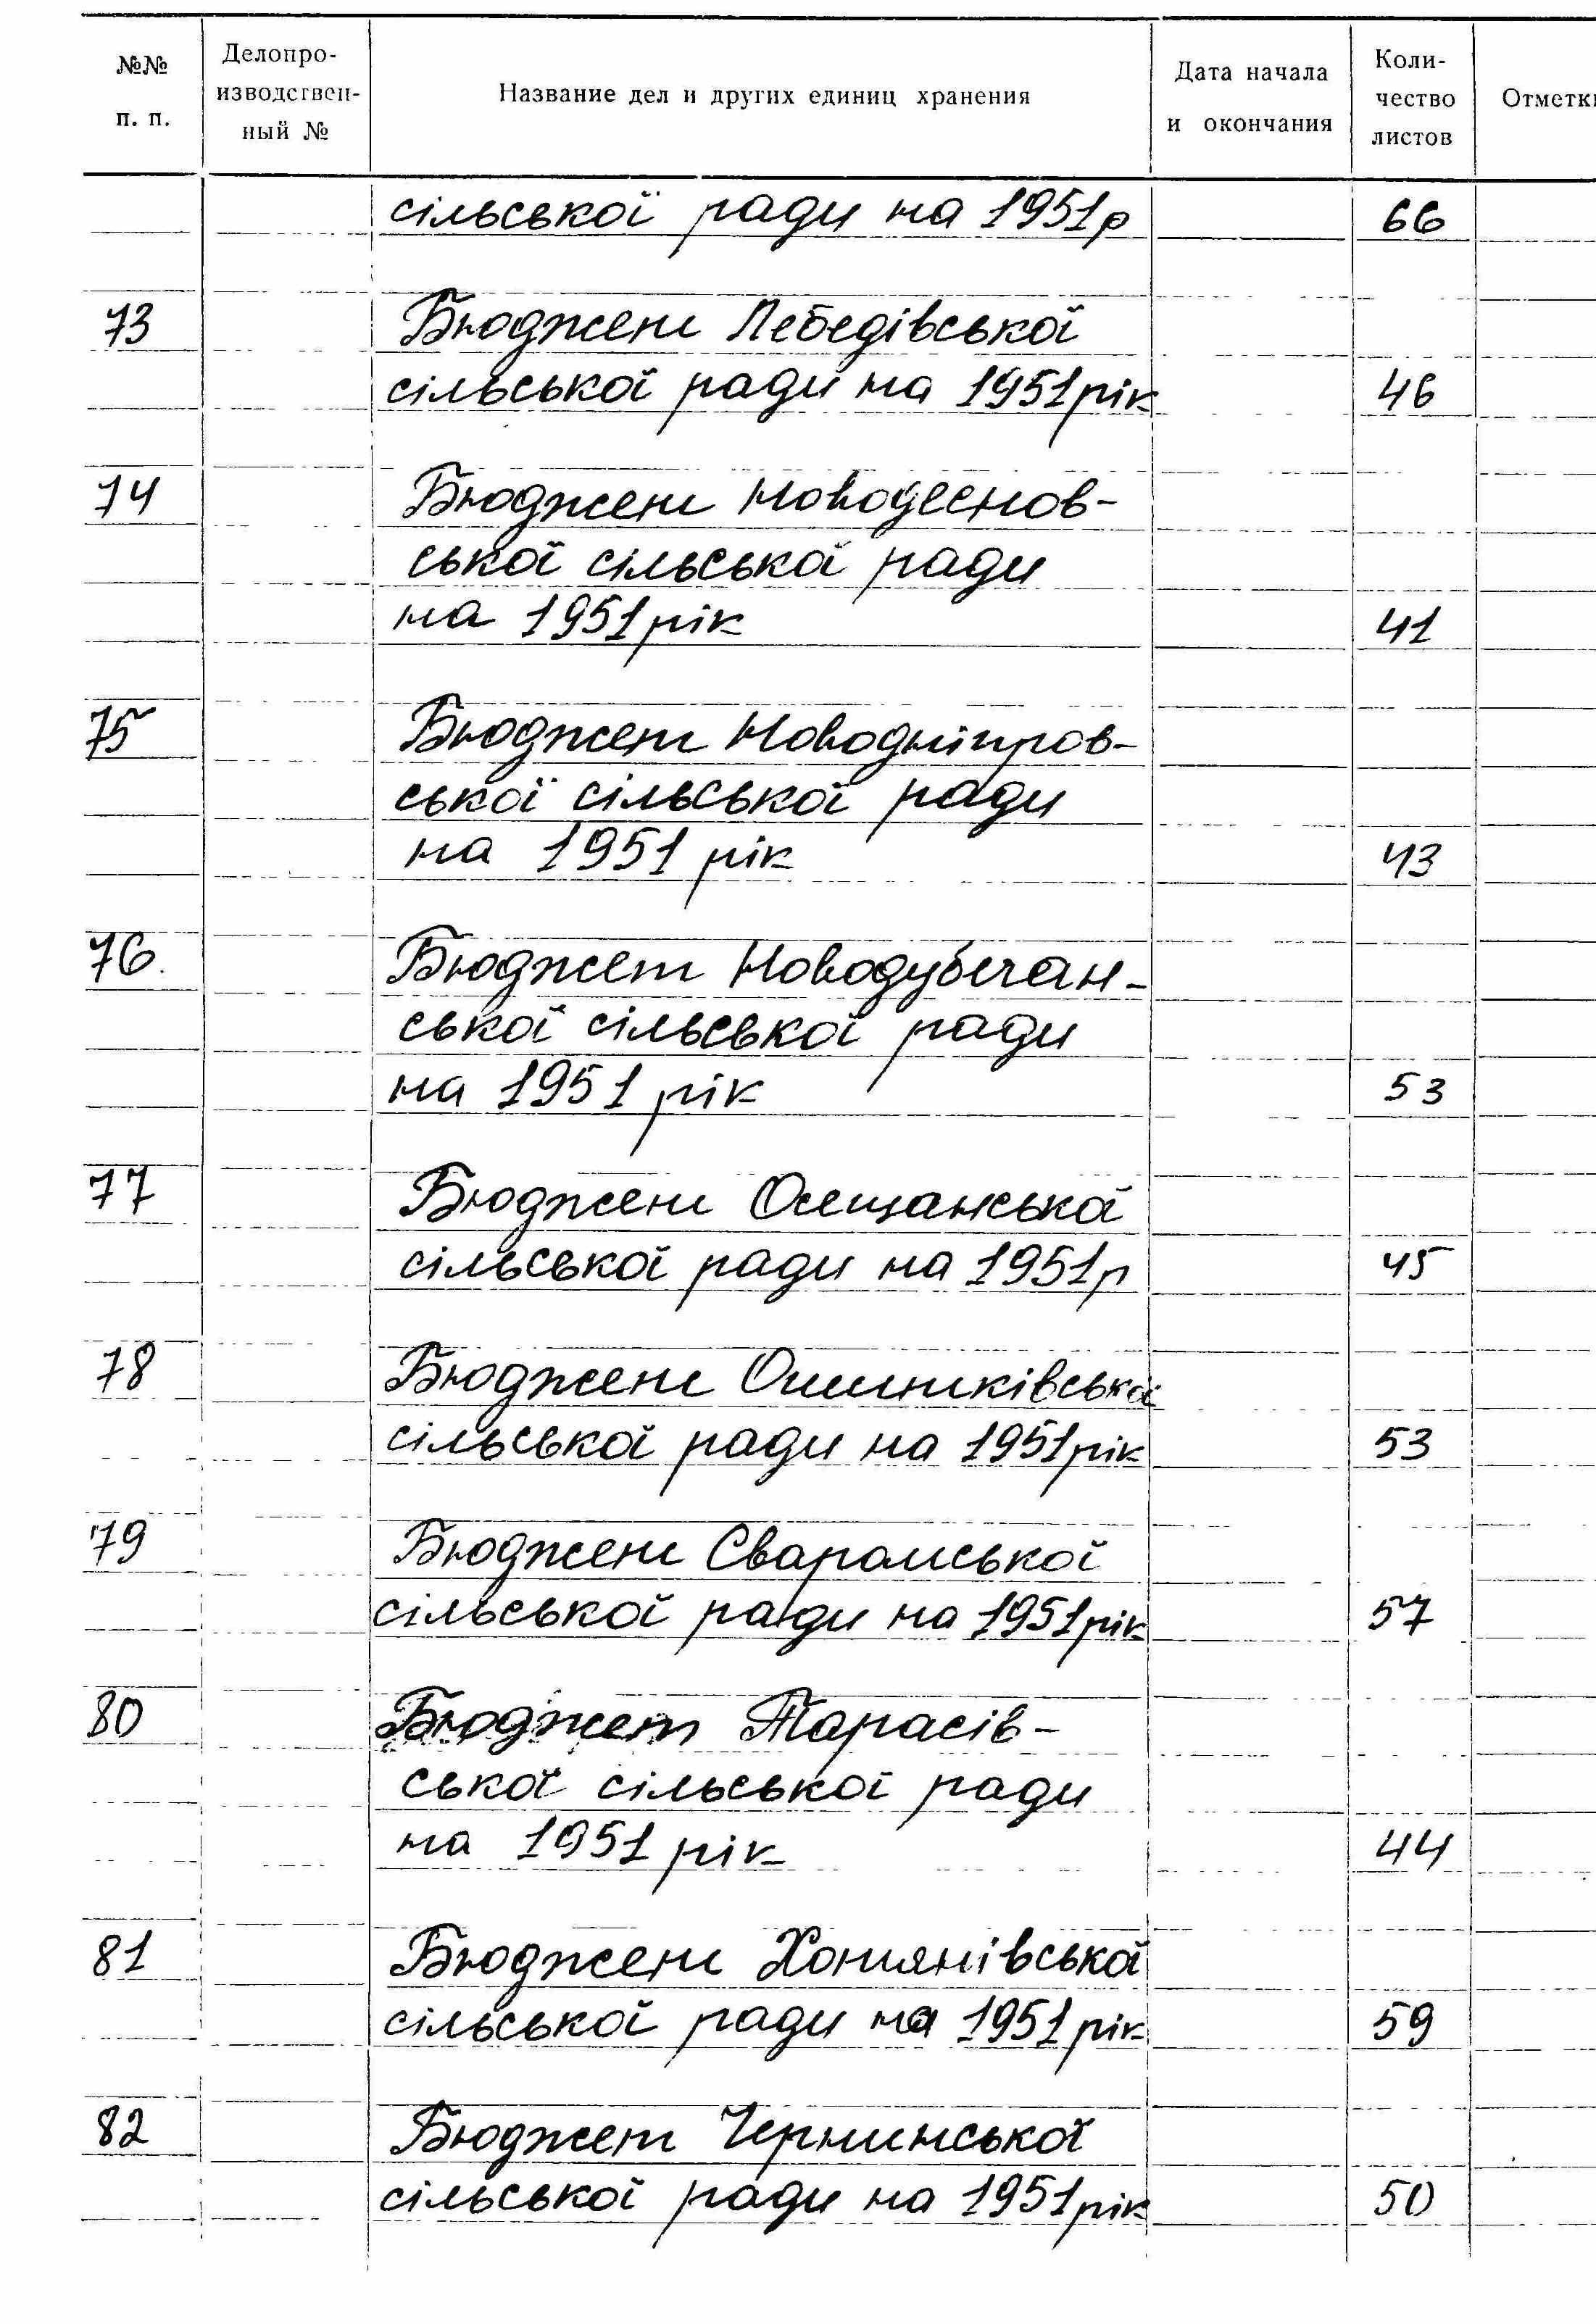 №№ п. п. Делопро-изводствен-ный № Название дел и других единиц хранения Дата начала и окончания Коли-чество листов Отметки
сільської ради на 1951р 66
73 Бюджет Лебедівської
сільської ради на 1951рік 46
74 Бюджет Новодеснов-
ської сільської ради
на 1951рік 41
75 Бюджет Новодніпров-
ської сільської ради
на 1951 рік 43
76. Бюджет Новодубечан-
ської сільської ради
на 1951 рік 53
77 Бюджет Осещанської
сільської ради на 1951р 45
78 Бюджет Ошитківської
сільської ради на 1951рік 53
79 Бюджет Сваромської
сільської ради на 1951рік 57
80 Бюджет Тарасів-
ської сільської ради
на 1951 рік 44
81 Бюджет Хотянівської
сільської ради на 1951рік 59
82 Бюджет Чернинської
сільської ради на 1951рік 50